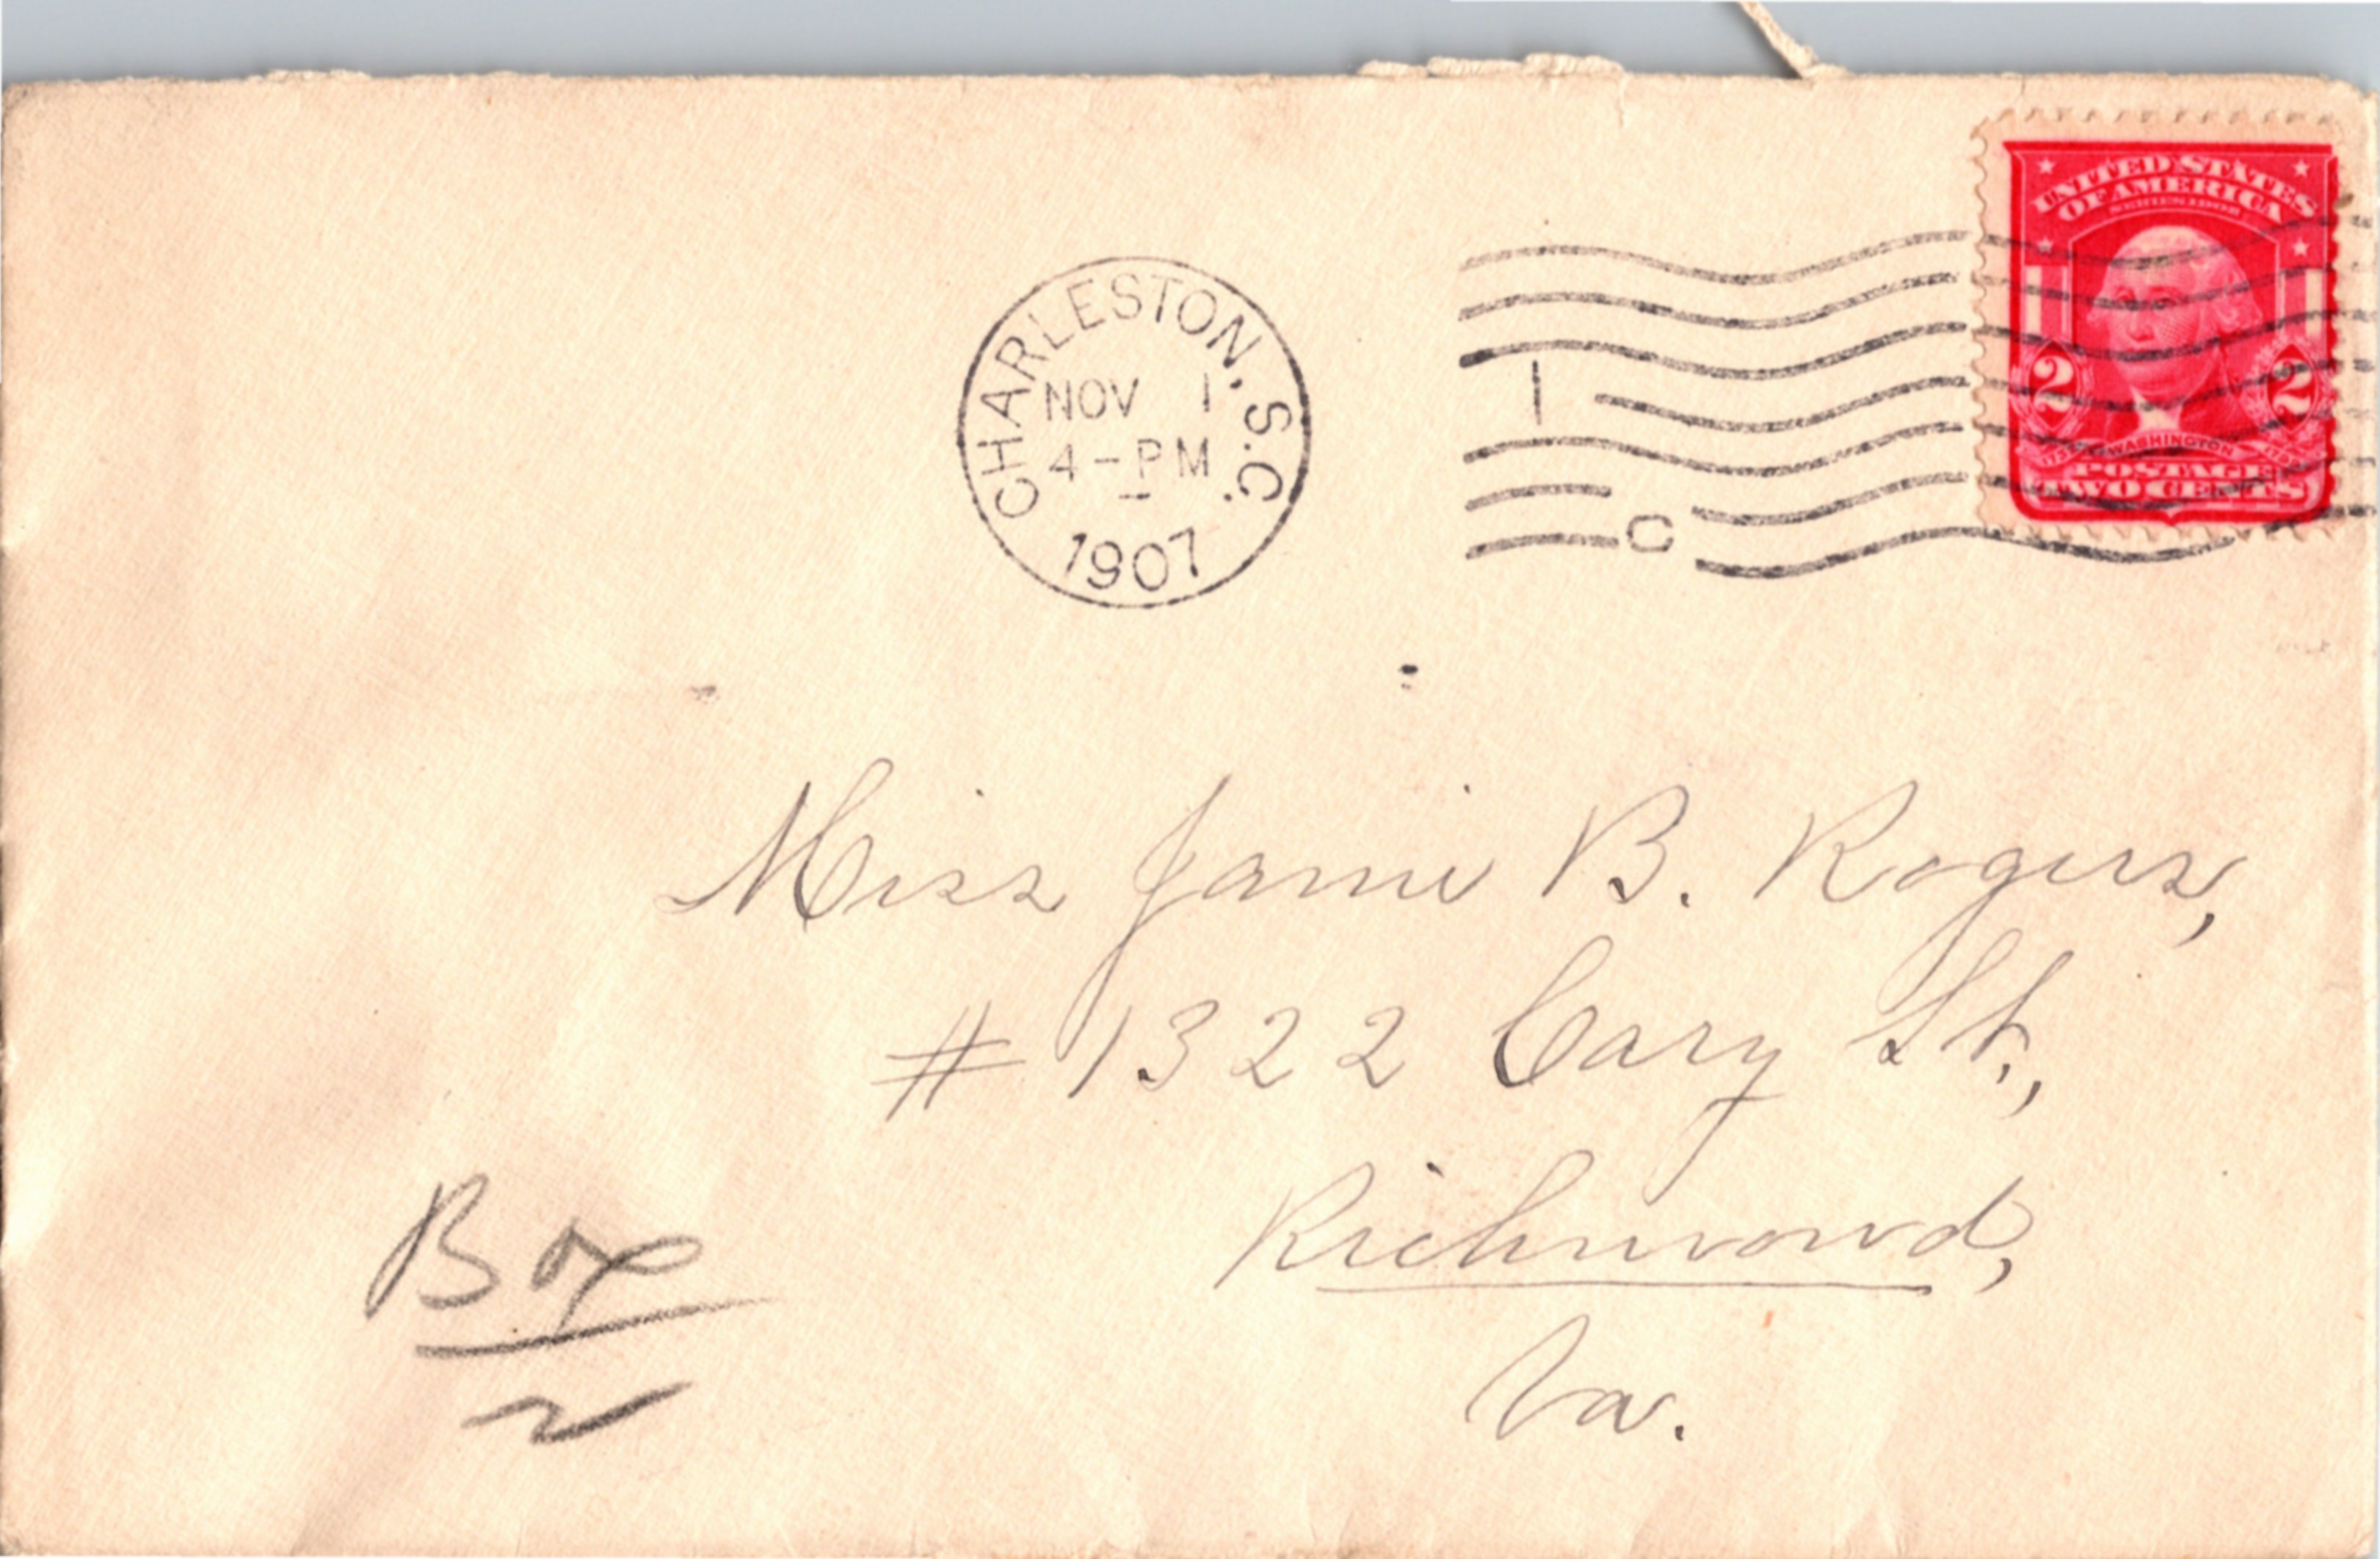 UNITED STATES
OF AMERICA
2 2
WASHINGTON
POSTAGE
TWO CENTS
CHARLESTON, S.C.
NOV 1
4-PM
1907
1
C
Miss Janie B. Rogers,
# 1322 Cary St.,
Richmond,
Va.
Box